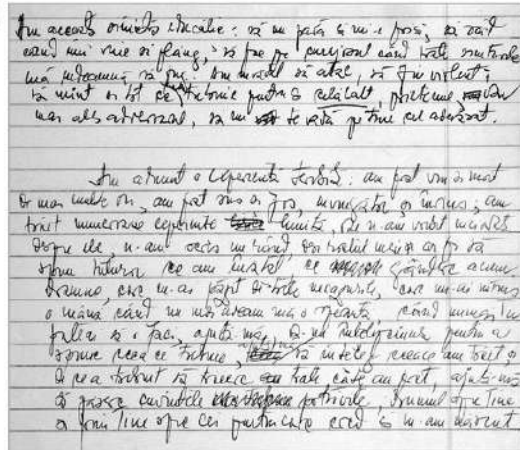 Am această ciudată educație: să nu pară că mi-e frică, să râd
când îmi vine să plâng, să fac pe curajosul când toate simțurile
mă îndeamnă să fug. Am învățat să atac, să fiu violent,
să mint și tot ce trebuie pentru ca celălalt, prietenul sau
mai ales adversarul, să nu te vadă pe tine cel adevărat.
Am adunat o experiență teribilă: am fost viu și mort
de mai multe ori, am fost sus și jos, învingător și învins, am
trăit numeroase experiențe limită, de n-am vorbit niciodată
despre ele, n-am scris un rând,
spun tuturor ce am învățat, ce gândesc acum.
Doamne, care m-ai păzit de toate necazurile, care mi-ai întins
o mână când nu mai aveam nicio speranță, când nimeni n-
putea să o facă, ajută-mă, dă-mi înțelepciunea pentru a
spune ceea ce trebuie, să înțeleg ceea ce am trăit, și
de ce a trebuit să trec toate câte au fost, ajută-mă
să găsesc cuvintele potrivite. Drumul spre tine
și prin tine spre cei pentru care cred că m-am născut